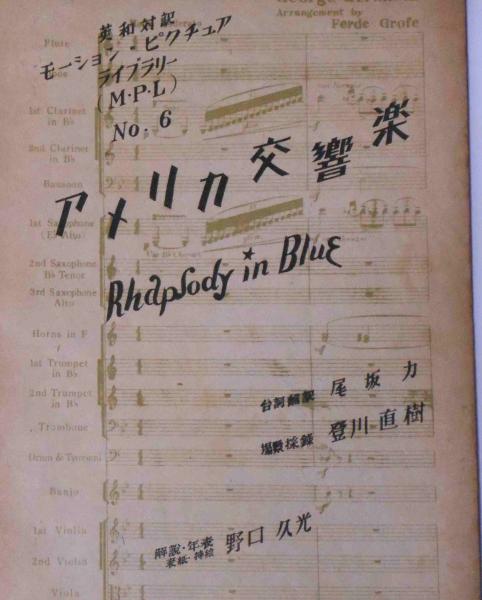 Arrangement by
Ferde Grofe
英和対訳
モーション・ピクチュア
ライブラリー
(M・P・L)
No. 6
アメリカ交響楽
Rhapsody in Blue
台詞飜訳 尾坂力
場景採錄 登川直樹
解説・年表
表紙・挿絵 野口久光
Flute
1st Clarinet
in B♭
2nd Clarinet
in B♭
Bassoon
1st Saxophone
(E♭ Alto)
2nd Saxophone
B♭ Tenor
3rd Saxophone
Alto
Horns in F
1st Trumpet
in B♭
2nd Trumpet
in B♭
Trombone
Drum & Tympani
Banjo
1st Violin
2nd Violin
Viola